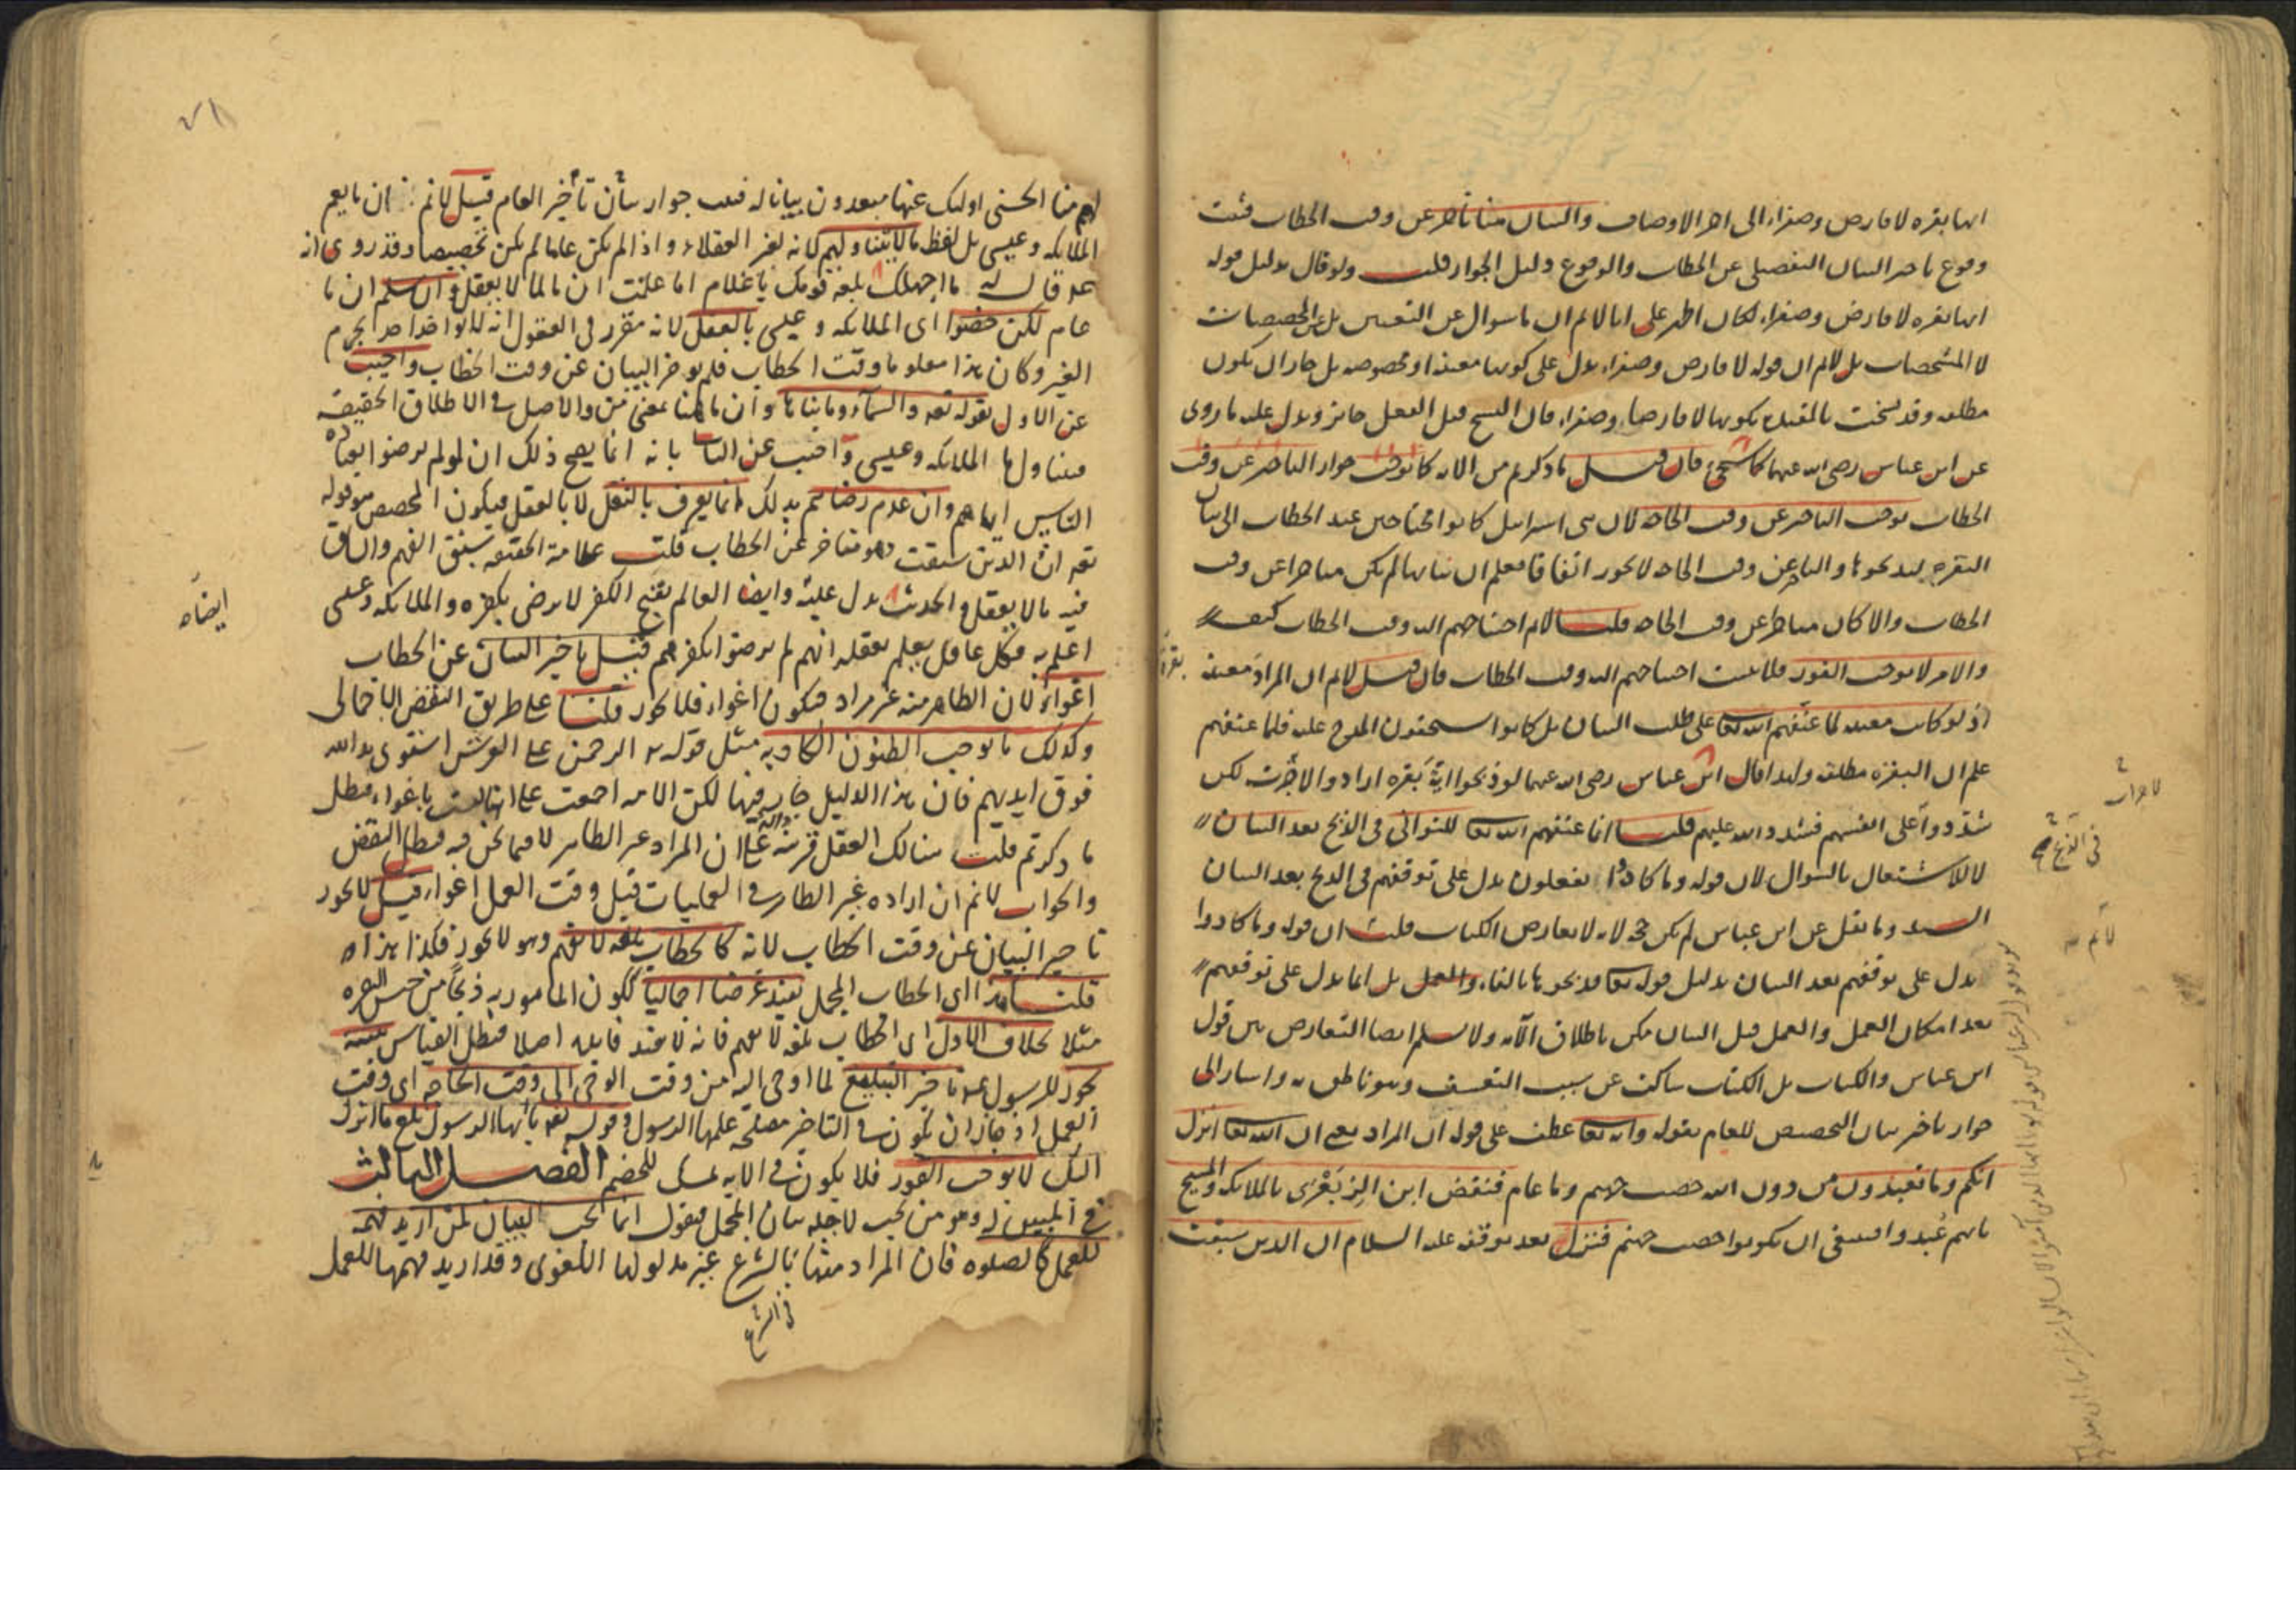 انها بقره لا فارض وصفراء الى اخر الاوصاف والبيان هنا تاخر عن وقت الخطاب فثبت
وقوع تاخر البيان التفصيلى عن الخطاب والوقوع دليل الجواز قلت ولو قال بدليل قوله
انها بقره لا فارض وصفراء لكان اظهر على انا لا نم ان ما سوال عن التعيين بل عن المخصصات
لا المشخصات بل لا نم ان قوله لا فارض وصفراء يدل على كونها معينه او مخصوصه بل جاز ان يكون
مطلقه وقد نسخت بالمقيده بكونها لا فارضا وصفراء فان النسخ قبل الفعل جائز ويدل عليه ما روى
عن ابن عباس رضى الله عنهما كما سيجئ فان قيل ما ذكرتم من الايه كما توجب جواز التاخير عن وقت
الخطاب توجب التاخير عن وقت الحاجه لان بنى اسرائيل كانوا محتاجين عند الخطاب الى بيان
البقره ليذبحوها والتاخير عن وقت الحاجه لا يجوز اتفاقا فعلم ان بيانها لم يكن متاخرا عن وقت
الخطاب والا كان متاخرا عن وقت الحاجه قلت لا نم احتياجهم اليه وقت الخطاب كيف
والامر لا يوجب الفور فلا يثبت احتياجهم اليه وقت الخطاب فان قيل لا نم ان المراد معينه
اذ لو كانت معينه لما عنفهم الله تعا على طلب البيان بل كانوا يستحقون المدح عليه فلما عنفهم
علم ان البقره مطلقه ولهذا قال ابن عباس رضى الله عنهما لو ذبحوا اية بقره ارادوا لاجزت لكن
شددوا على انفسهم فشدد الله عليهم قلت انما عنفهم الله تعا للتوانى فى الذبح بعد البيان
لا للاشتغال بالسوال لان قوله وما كادوا يفعلون يدل على توقفهم فى الذبح بعد البيان
وما نقل عن ابن عباس لم يكن حجه لانه لا يعارض الكتاب قلت ان قوله وما كادوا
يدل على توقفهم بعد البيان بدليل قوله تعا فذبحوها بالفاء والعمل بل انما يدل على توقفهم
بعد امكان العمل والعمل قبل البيان ممكن باطلاق الآيه ولا نسلم ايضا التعارض بين قول
ابن عباس والكتاب بل الكتاب ساكت عن سبب التعنيف وهو ناطق به واشار الى
جواز تاخر بيان التخصيص للعام بقوله وانه تعا عطف على قوله ان المراد يعنى ان الله تعا انزل
انكم وما تعبدون من دون الله حصب جهنم وما عام فنقض ابن الزبعرى بالملائكه والمسيح
بانهم عبدوا فينبغى ان يكونوا حصب جهنم فنزل بعد توقفه عليه السلام ان الذين سبقت
فى الذبح
لا نم
لهم منا الحسنى اولئك عنها مبعدون بيانا له فثبت جواز بيان تأخير العام قيل لا نم ان ما يعم
الملائكه وعيسى بل لفظ ما لا يتناولهم لانه لغير العقلاء واذا لم يكن عاما لم يكن تخصيصا وقد روى انه
عم قال له ما اجهلك بلغه قومك يا غلام اما علمت ان ما لما لا يعقل وان سلم ان ما
عام لكن خصوا اى الملائكه وعيسى بالعقل لانه مقرر فى العقول انه لا يواخذ احد بجرم
الغير وكان هذا معلوما وقت الخطاب فلم يوخر البيان عن وقت الخطاب واجيب
عن الاول بقوله تعه والسماء وما بناها وان ما هنا بمعنى من والاصل فى الاطلاق الحقيقه
فيتناولها الملائكه وعيسى واجيب عن الثانى بانه انما يصح ذلك ان لو لم يرضوا بعباده
الناس اياهم وان عدم رضاهم بذلك انما يعرف بالنقل لا بالعقل فيكون المخصص هو قوله
تعه ان الذين سبقت وهو متاخر عن الخطاب قلت علامة الحقيقه سبق الفهم والسابق
فيه ما لا يعقل والحديث يدل عليه وايضا العالم بقبح الكفر لا يرضى بكفره والملائكه وعيسى
اعلم به فكل عاقل يعلم بعقله انهم لم يرضوا بكفرهم قيل تاخير البيان عن الخطاب
اغواء لان الظاهر منه غير مراد فيكون اغواء فلا يجوز قلنا على طريق النقض الاجمالى
وكذلك ما يوجب الظنون الكاذبه مثل قوله تعه الرحمن على العرش استوى يد الله
فوق ايديهم فان هذا الدليل جار فيها لكن الامه اجمعت على انها ليست باغواء فبطل
ما ذكرتم قلت هنالك العقل قرينه دالة على ان المراد غير الظاهر لا فيما نحن فيه فبطل النقض
والجواب لا نم ان اراده غير الظاهر فى العمليات قبل وقت العمل اغواء قيل لا يجوز
تاخير البيان عن وقت الخطاب لانه كالخطاب بلغه لا تفهم وهو لا يجوز فكذا هذا
قلنا هذا اى الخطاب المجمل يفيد غرضا اجماليا ككون المامور به ذبحا من جنس البقره
مثلا بخلاف الاول اى الخطاب بلغه لا تفهم فانه لا يفيد فايده اصلا فبطل القياس تنبيه
يجوز للرسول عم تاخير التبليغ لما اوحى اليه من وقت الوحى الى وقت الحاجه اى وقت
العمل اذ جاز ان يكون فى التاخير مصلحه علمها الرسول وقوله تعه يا ايها الرسول بلغ ما انزل
اليك لا يوجب الفور فلا يكون فى الايه تمسك للخصم الفصل الثالث
فى المبين له وهو من يجب لاجله بيان المجمل فيقول انما يجب البيان لمن اريد فهمه
للعمل كالصلوه فان المراد منها بالشرع غير مدلولها اللغوى وقد اريد فهمها للعمل
ايضا
فى الشرع